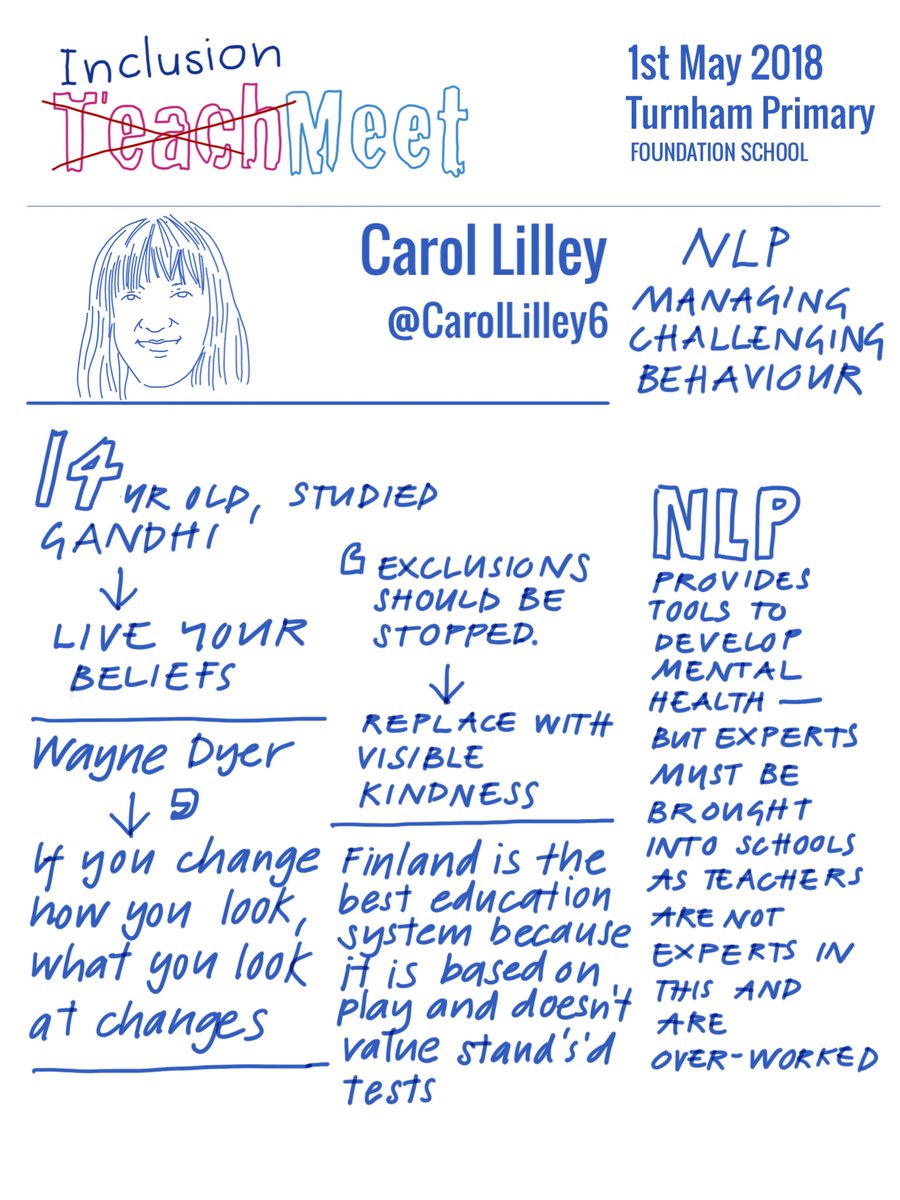 Inclusion
TeachMeet
1st May 2018
Turnham Primary
FOUNDATION SCHOOL
Carol Lilley
@CarolLilley6
NLP
MANAGING
CHALLENGING
BEHAVIOUR
14 YR OLD, STUDIED
GANDHI
LIVE YOUR
BELIEFS
Wayne Dyer
If you change
how you look,
what you look
at changes
EXCLUSIONS
SHOULD BE
STOPPED.
REPLACE WITH
VISIBLE
KINDNESS
Finland is the
best education
system because
it is based on
play and doesn't
value stand's'd
tests
NLP
PROVIDES
TOOLS TO
DEVELOP
MENTAL
HEALTH —
BUT EXPERTS
MUST BE
BROUGHT
INTO SCHOOLS
AS TEACHERS
ARE NOT
EXPERTS IN
THIS AND
ARE
OVER-WORKED